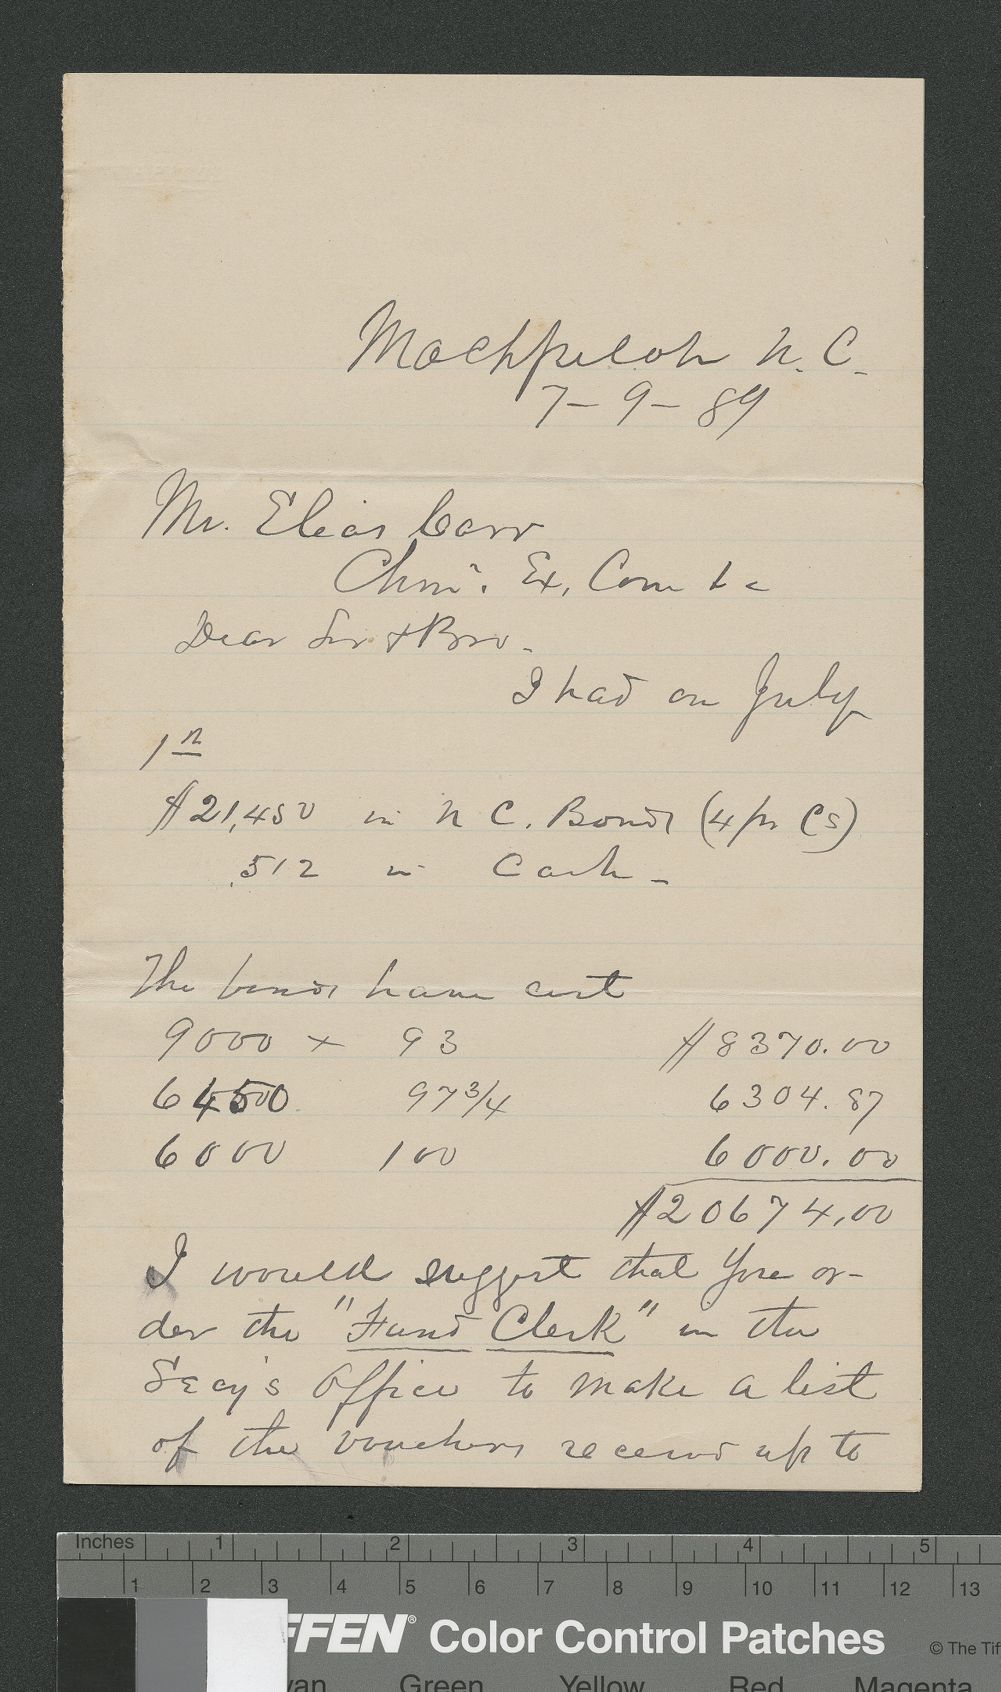 Machpelah N.C.
7-9-89
Mr. Elias Carr
Chmn. Ex. Com &c
Dear Sir & Bro.
I had on July
1st
$21,450 in N C. Bonds (4 pr Cs)
512 in Cash -
The bonds have cost
9000 × 93 $8370.00
6450 97 3/4 6304.87
6000 100 6000.00
$20674.00
I would suggest that you or-
der the "Fund Clerk" in the
Secy's Office to make a list
of the vouchers received up to
Inches 1 2 3 4 5
1 2 3 4 5 6 7 8 9 10 11 12 13
FFEN® Color Control Patches © The Tif
yan Green Yellow Red Magenta